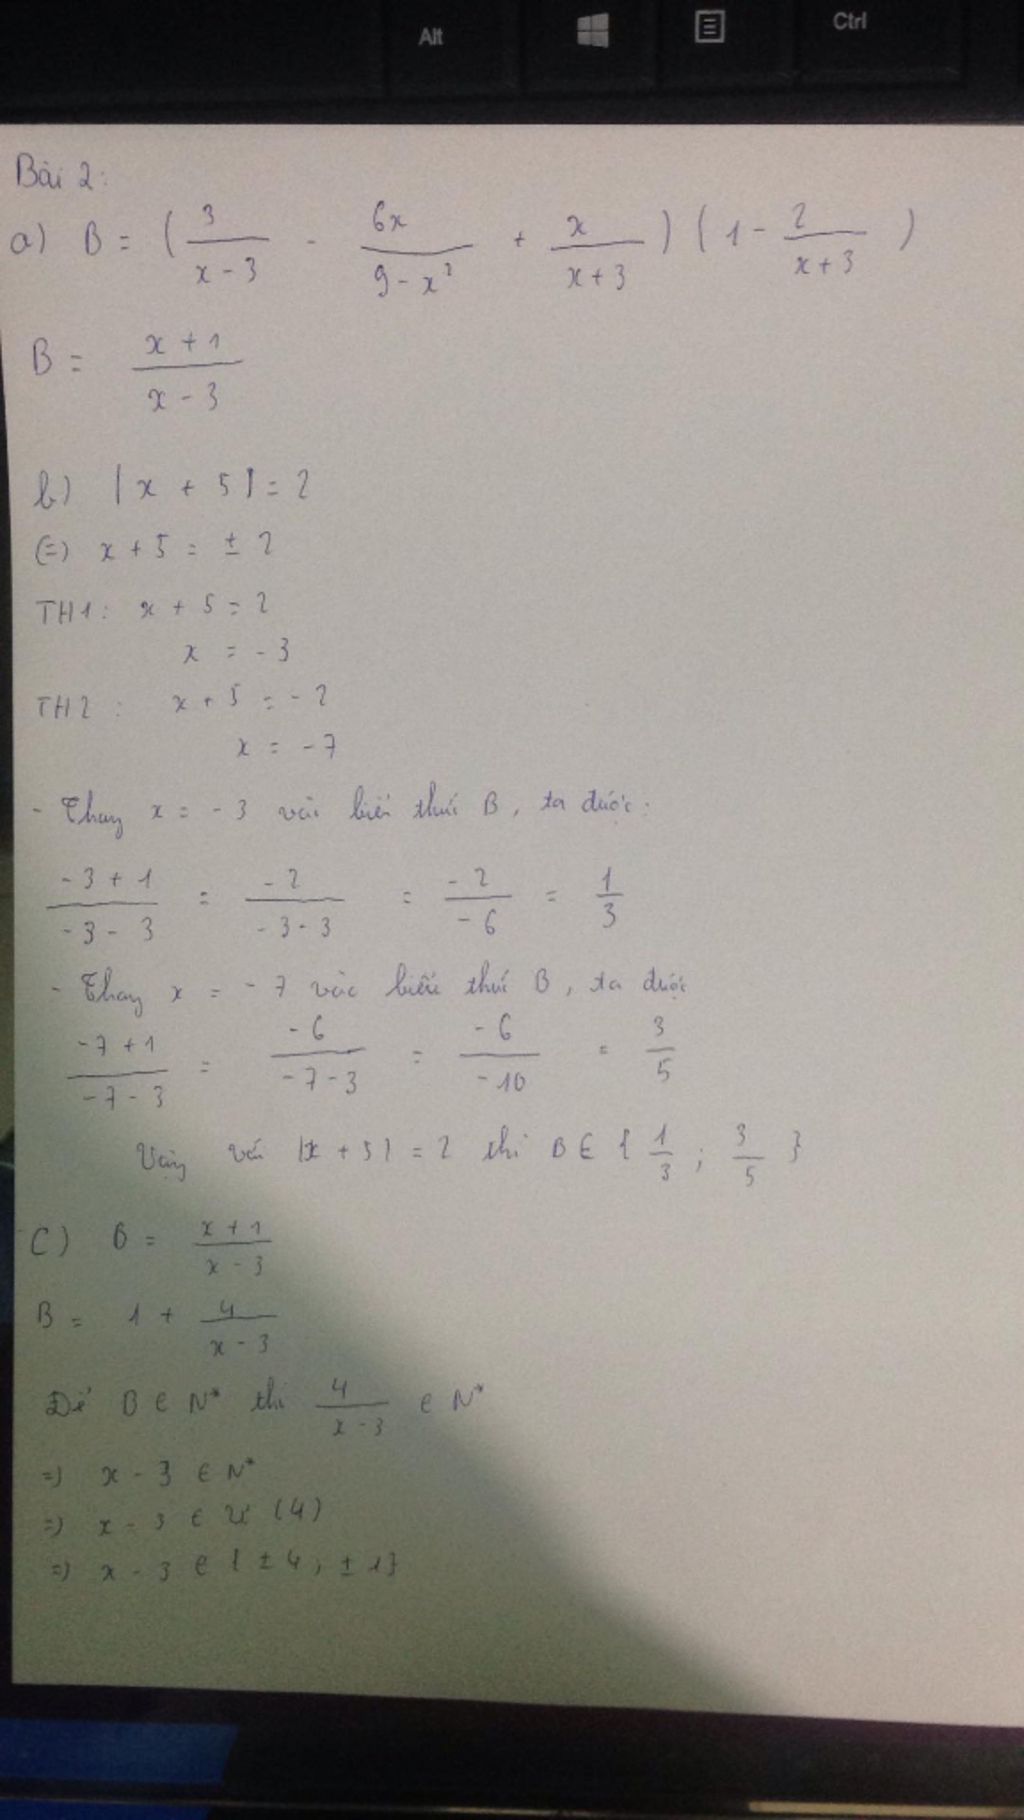 Alt
Ctrl
Bài 2:
a) B = (3/(x - 3) - 6x/(9 - x²) + x/(x + 3)) (1 - 2/(x + 3))
B = (x + 1)/(x - 3)
b) |x + 5| = 2
(=) x + 5 = ± 2
TH1: x + 5 = 2
x = - 3
TH2: x + 5 = - 2
x = - 7
- Thay x = - 3 vào biểu thức B, ta được:
(-3 + 1)/(-3 - 3) = -2/(-3 - 3) = -2/-6 = 1/3
- Thay x = - 7 vào biểu thức B, ta được
(-7 + 1)/(-7 - 3) = -6/(-7 - 3) = -6/-10 = 3/5
Vậy với |x + 5| = 2 thì B ∈ { 1/3 ; 3/5 }
C) B = (x + 1)/(x - 3)
B = 1 + 4/(x - 3)
Để B ∈ N* thì 4/(x - 3) ∈ N*
=) x - 3 ∈ N*
=) x - 3 ∈ Ư (4)
=) x - 3 ∈ { ± 4 ; ± 1}